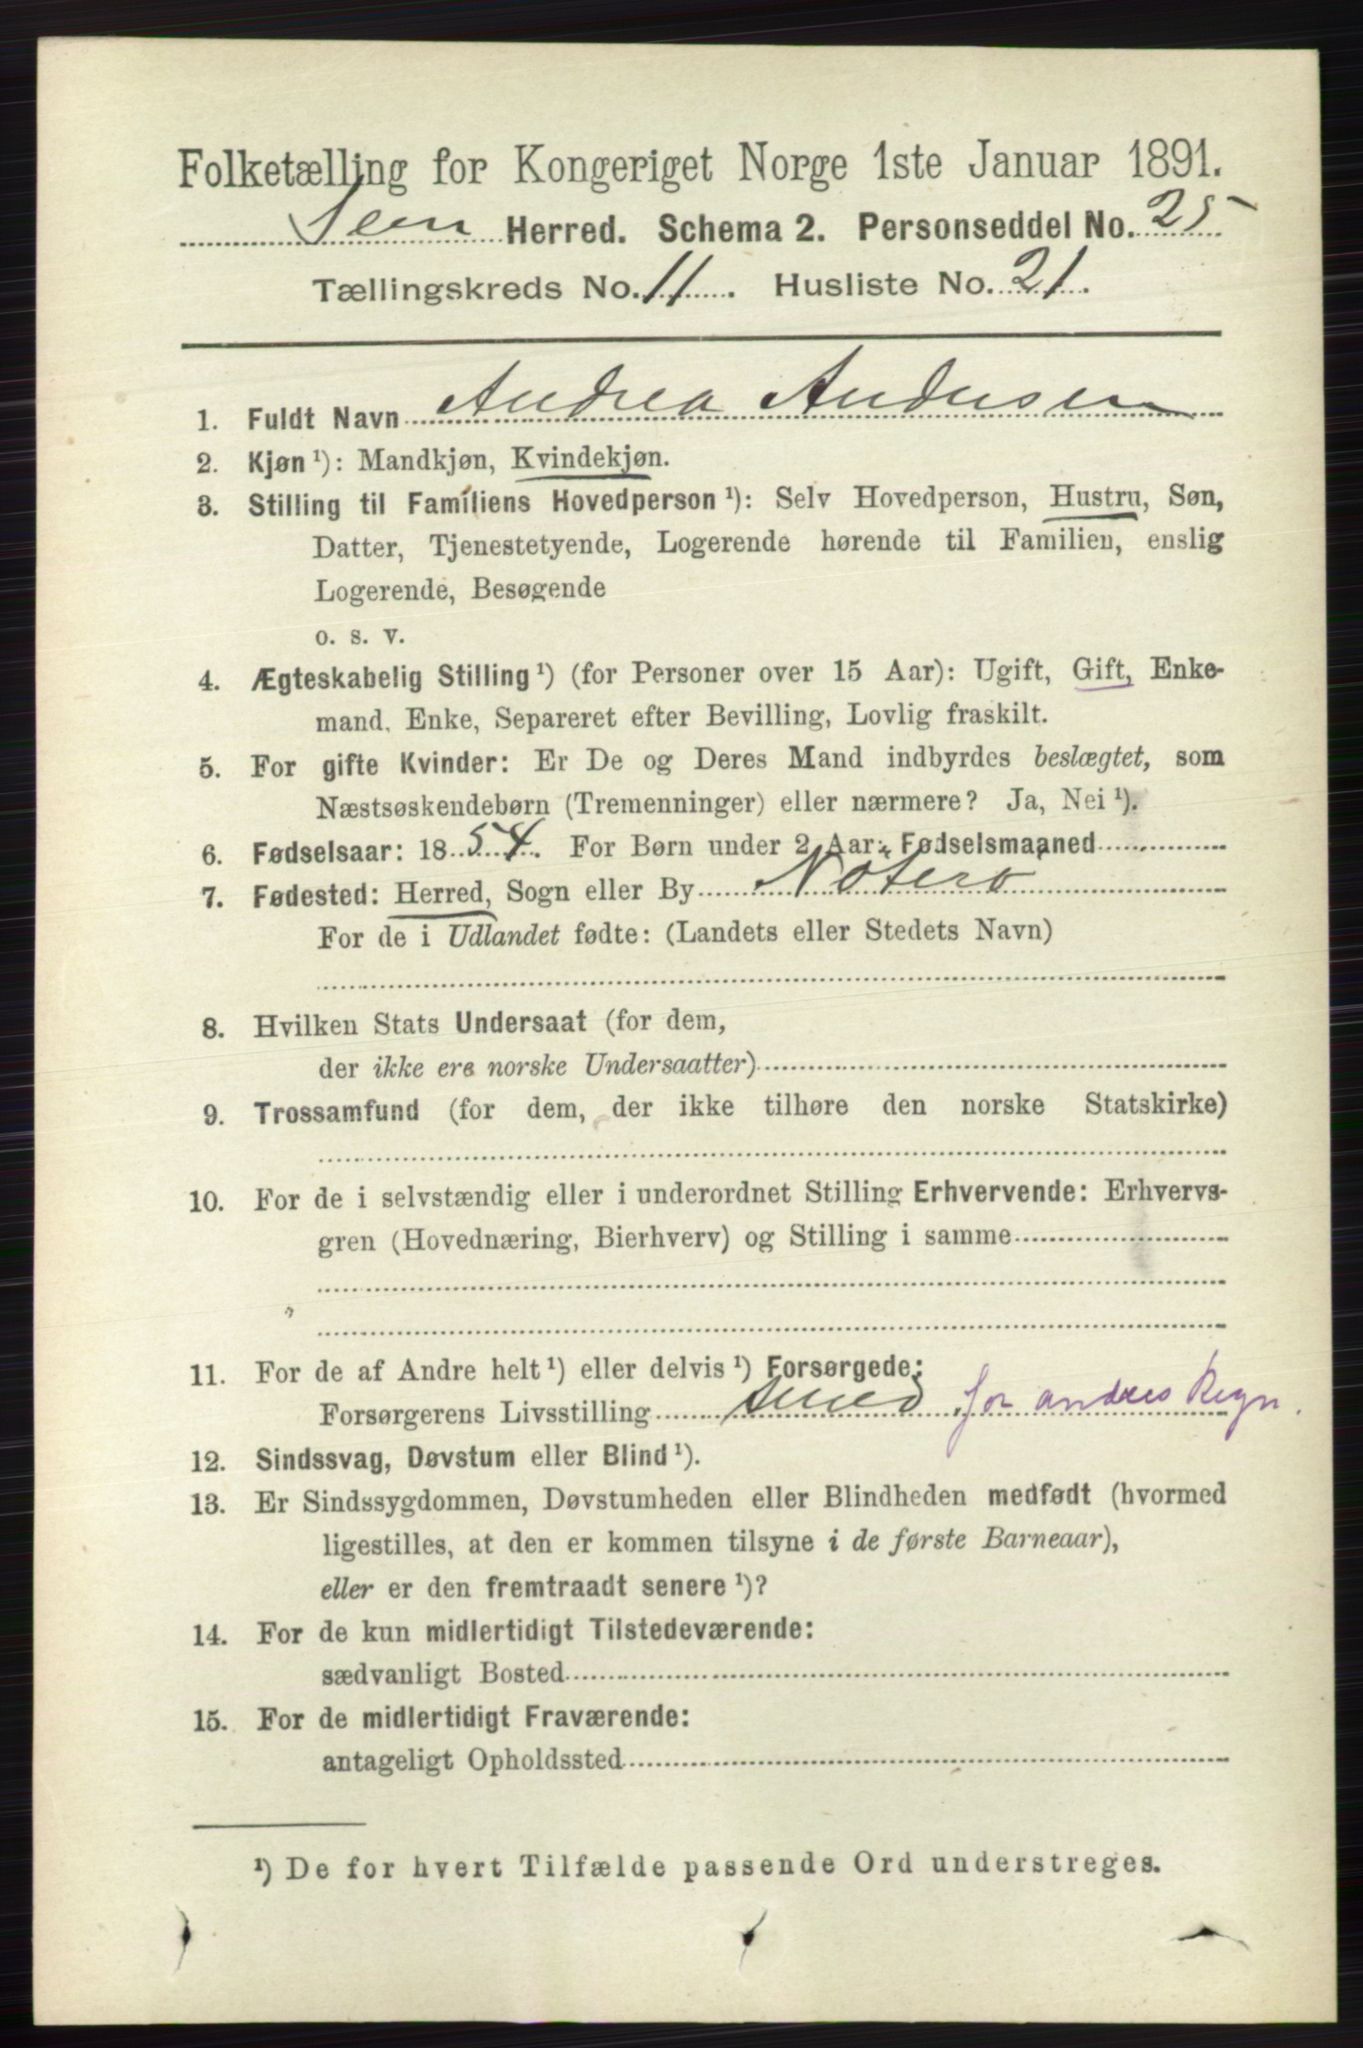 Folketælling for Kongeriget Norge 1ste Januar 1891.
Sem Herred. Schema 2. Personseddel No. 25
Tællingskreds No. 11. Husliste No. 21.
1. Fuldt Navn Andrea Andersen
2. Kjøn ¹): Mandkjøn, Kvindekjøn.
3. Stilling til Familiens Hovedperson ¹): Selv Hovedperson, Hustru, Søn,
Datter, Tjenestetyende, Logerende hørende til Familien, enslig
Logerende, Besøgende
o. s. v.
4. Ægteskabelig Stilling ¹) (for Personer over 15 Aar): Ugift, Gift, Enke-
mand, Enke, Separeret efter Bevilling, Lovlig fraskilt.
5. For gifte Kvinder: Er De og Deres Mand indbyrdes beslægtet, som
Næstsøskendebørn (Tremenninger) eller nærmere? Ja, Nei ¹).
6. Fødselsaar: 1854. For Børn under 2 Aar: Fødselsmaaned
7. Fødested: Herred, Sogn eller By Nøterø
For de i Udlandet fødte: (Landets eller Stedets Navn)
8. Hvilken Stats Undersaat (for dem,
der ikke ere norske Undersaatter)
9. Trossamfund (for dem, der ikke tilhøre den norske Statskirke)
10. For de i selvstændig eller i underordnet Stilling Erhvervende: Erhvervs-
gren (Hovednæring, Bierhverv) og Stilling i samme
11. For de af Andre helt ¹) eller delvis ¹) Forsørgede:
Forsørgerens Livsstilling smed for andres Regn.
12. Sindssvag, Døvstum eller Blind ¹).
13. Er Sindssygdommen, Døvstumheden eller Blindheden medfødt (hvormed
ligestilles, at den er kommen tilsyne i de første Barneaar),
eller er den fremtraadt senere ¹)?
14. For de kun midlertidigt Tilstedeværende:
sædvanligt Bosted
15. For de midlertidigt Fraværende:
antageligt Opholdssted
¹) De for hvert Tilfælde passende Ord understreges.